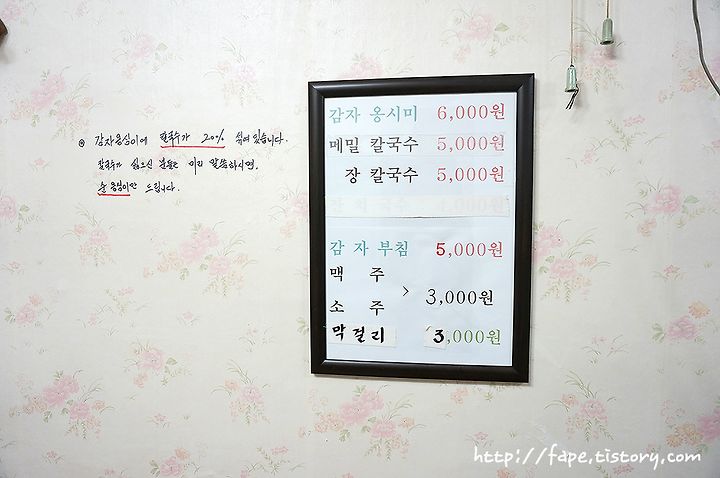 ⊙ 감자옹심이에 칼국수가 20% 섞여있습니다.
칼국수가 싫으신 분들은 미리 말씀하시면,
순 옹심이만 드립니다.
감자 옹시미 6,000원
메밀 칼국수 5,000원
장 칼국수 5,000원
감자부침 5,000원
맥 주
> 3,000원
소 주
막걸리 3,000원
http://fape.tistory.com